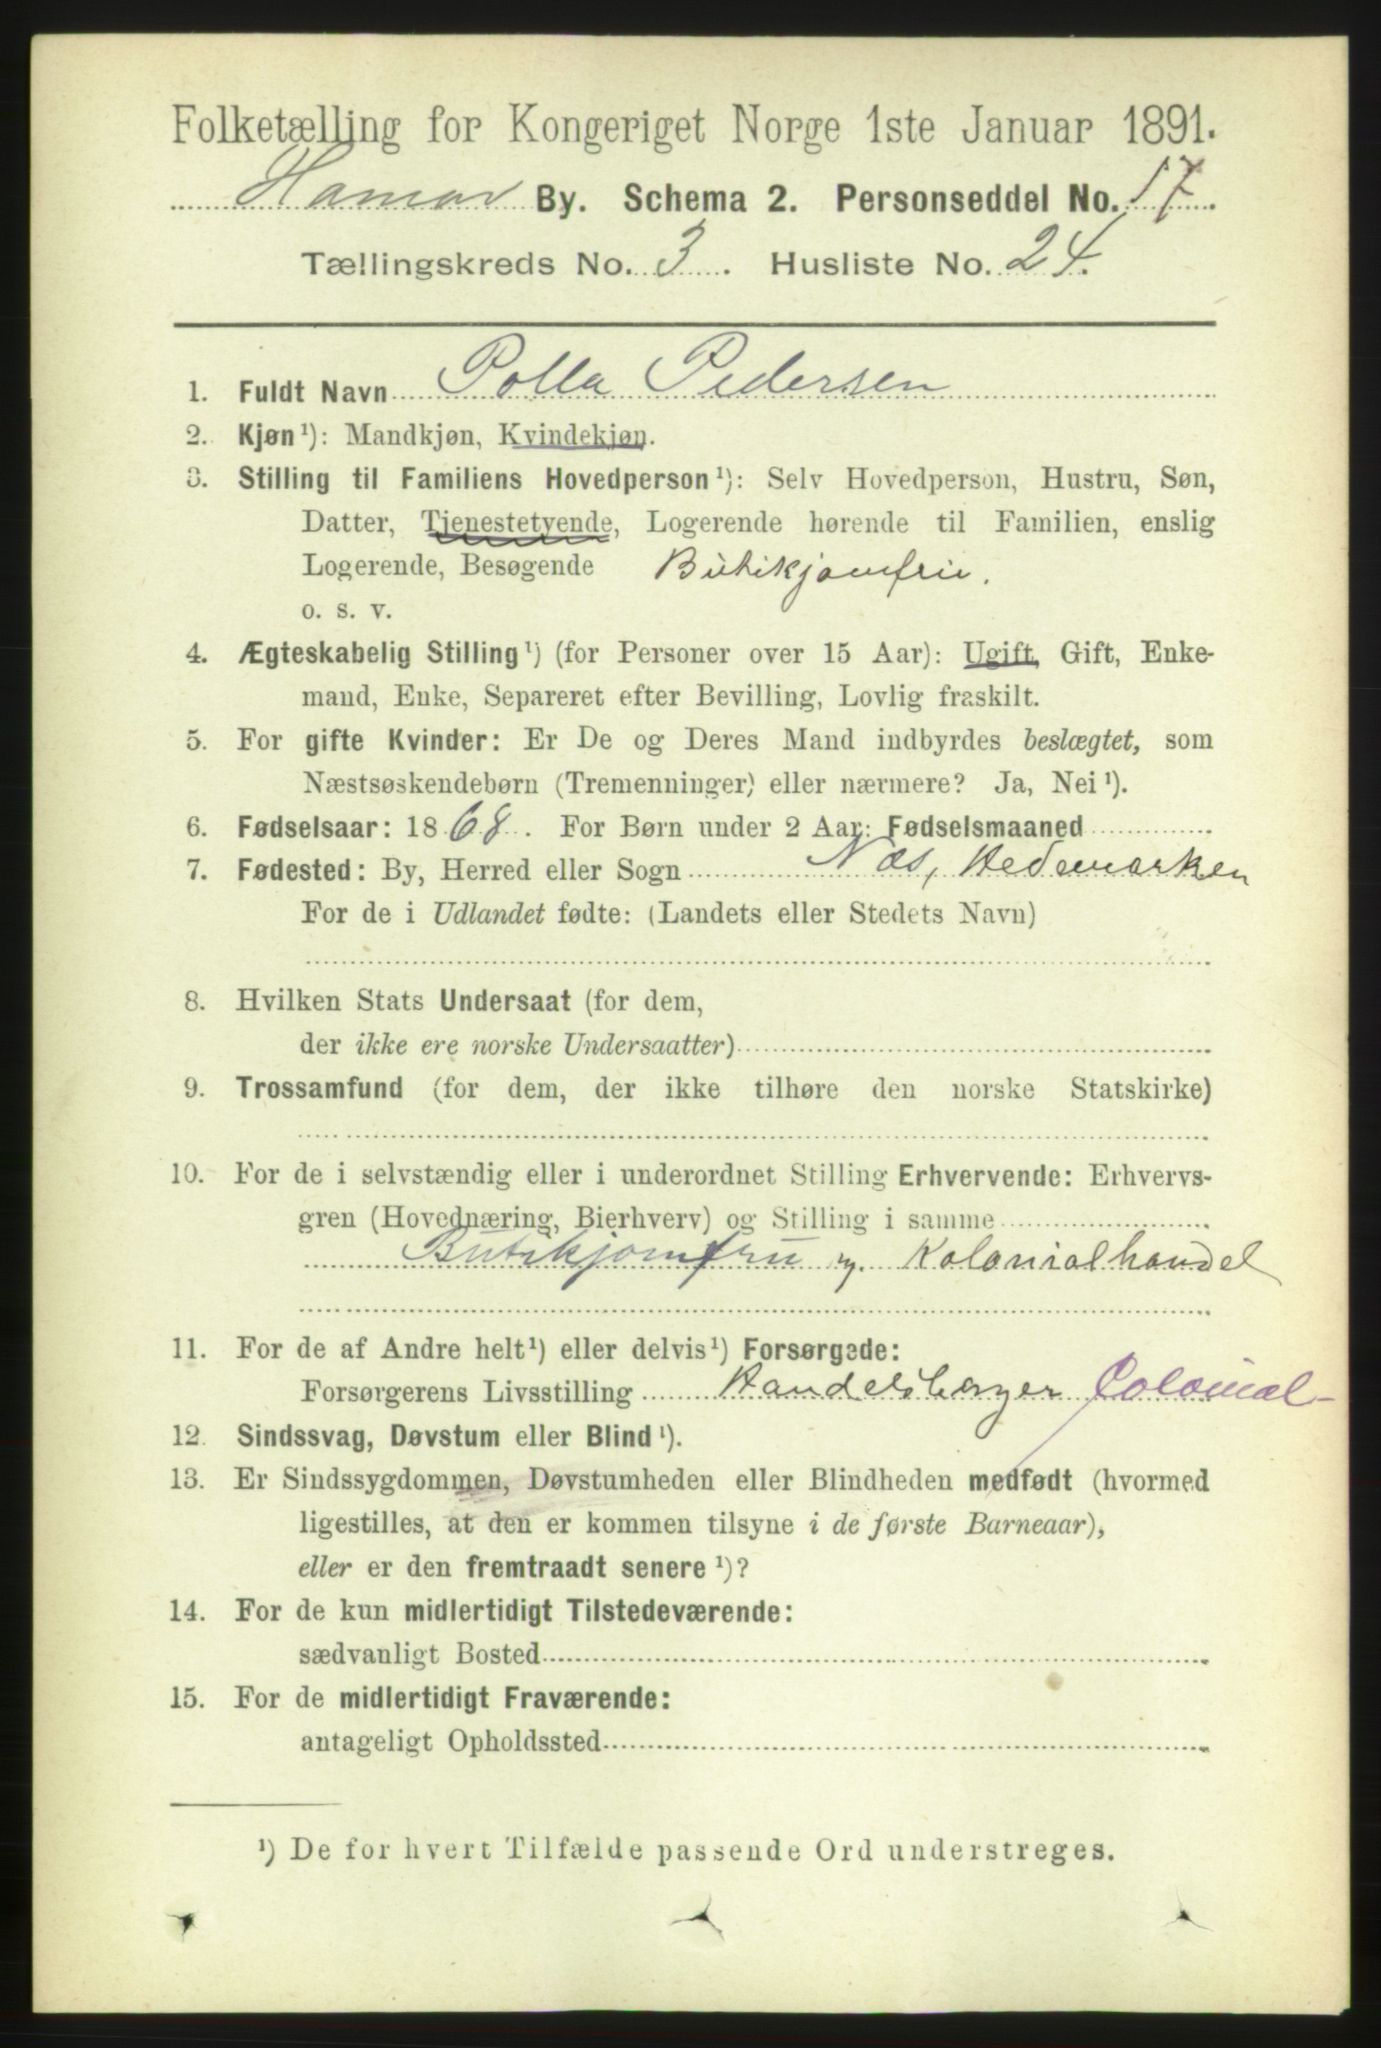 Folketælling for Kongeriget Norge 1ste Januar 1891.
Hamar By. Schema 2. Personseddel No. 17.
Tællingskreds No. 3. Husliste No. 24.
1. Fuldt Navn Polla Pedersen
2. Kjøn¹): Mandkjøn, Kvindekjøn.
3. Stilling til Familiens Hovedperson¹): Selv Hovedperson, Hustru, Søn,
Datter, Tjenestetyende, Logerende hørende til Familien, enslig
Logerende, Besøgende Butikjomfru.
o. s. v.
4. Ægteskabelig Stilling¹) (for Personer over 15 Aar): Ugift, Gift, Enke-
mand, Enke, Separeret efter Bevilling, Lovlig fraskilt.
5. For gifte Kvinder: Er De og Deres Mand indbyrdes beslægtet, som
Næstsøskendebørn (Tremenninger) eller nærmere? Ja, Nei¹).
6. Fødselsaar: 1868. For Børn under 2 Aar: Fødselsmaaned
7. Fødested: By, Herred eller Sogn Næs, Hedemarken
For de i Udlandet fødte: (Landets eller Stedets Navn)
8. Hvilken Stats Undersaat (for dem,
der ikke ere norske Undersaatter)
9. Trossamfund (for dem, der ikke tilhøre den norske Statskirke)
10. For de i selvstændig eller i underordnet Stilling Erhvervende: Erhvervs-
gren (Hovednæring, Bierhverv) og Stilling i samme
Butikjomfru v. Kolonialhandel
11. For de af Andre helt¹) eller delvis¹) Forsørgede:
Forsørgerens Livsstilling Handelsborger Colonial-
12. Sindssvag, Døvstum eller Blind¹).
13. Er Sindssygdommen, Døvstumheden eller Blindheden medfødt (hvormed
ligestilles, at den er kommen tilsyne i de første Barneaar),
eller er den fremtraadt senere¹)?
14. For de kun midlertidigt Tilstedeværende:
sædvanligt Bosted
15. For de midlertidigt Fraværende:
antageligt Opholdssted
¹) De for hvert Tilfælde passende Ord understreges.